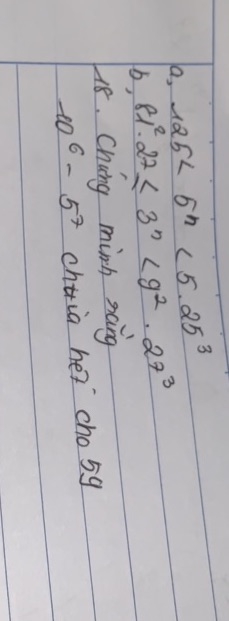 a, 125 < 5ⁿ < 5.25³
b, 81².27 < 3ⁿ < 9².27³
18. Chứng minh rằng
10⁶ - 5⁷ chia hết cho 59